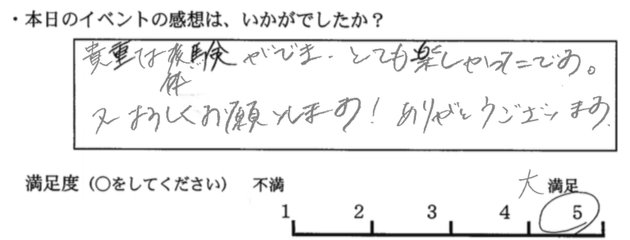 ・本日のイベントの感想は、いかがでしたか？
貴重な体験ができ、とても楽しかったです。
又よろしくお願いします！ありがとうございます。
満足度（○をしてください） 不満 大満足
1 2 3 4 5